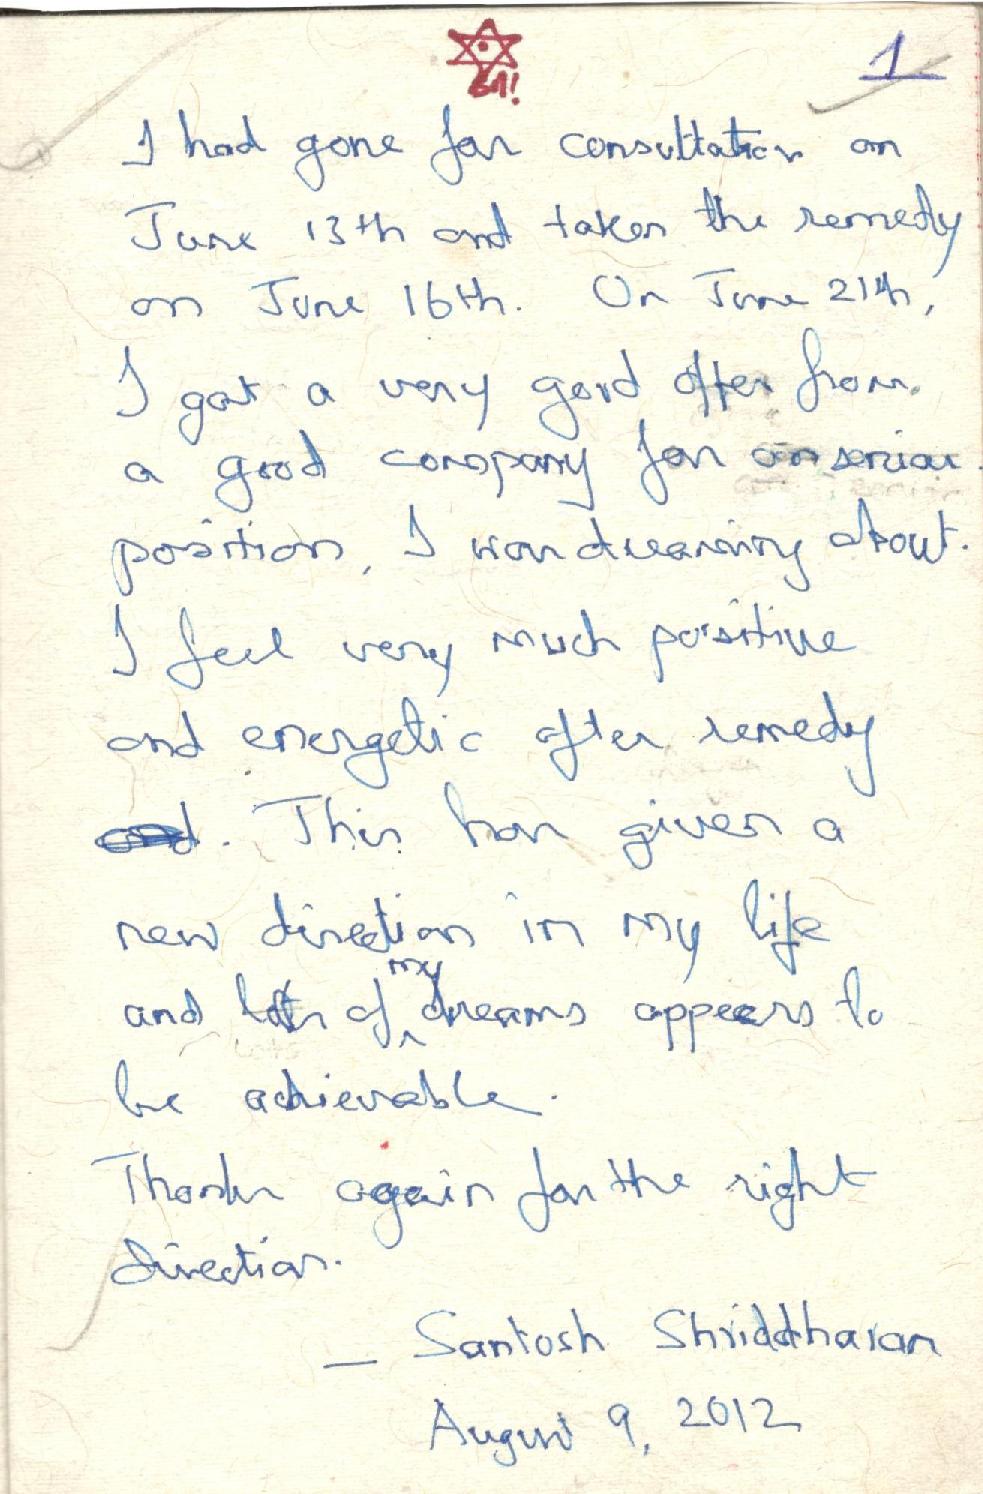 1
I had gone for consultation on
June 13th and taken the remedy
on June 16th. On June 21th,
I got a very good offer from
a good company for senior
position, I was dreaming about.
I feel very much positive
and energetic after remedy
. This has given a
new direction in my life
and lots of my dreams appears to
be achievable.
Thanks again for the right
direction.
— Santosh Shriddharan
August 9, 2012